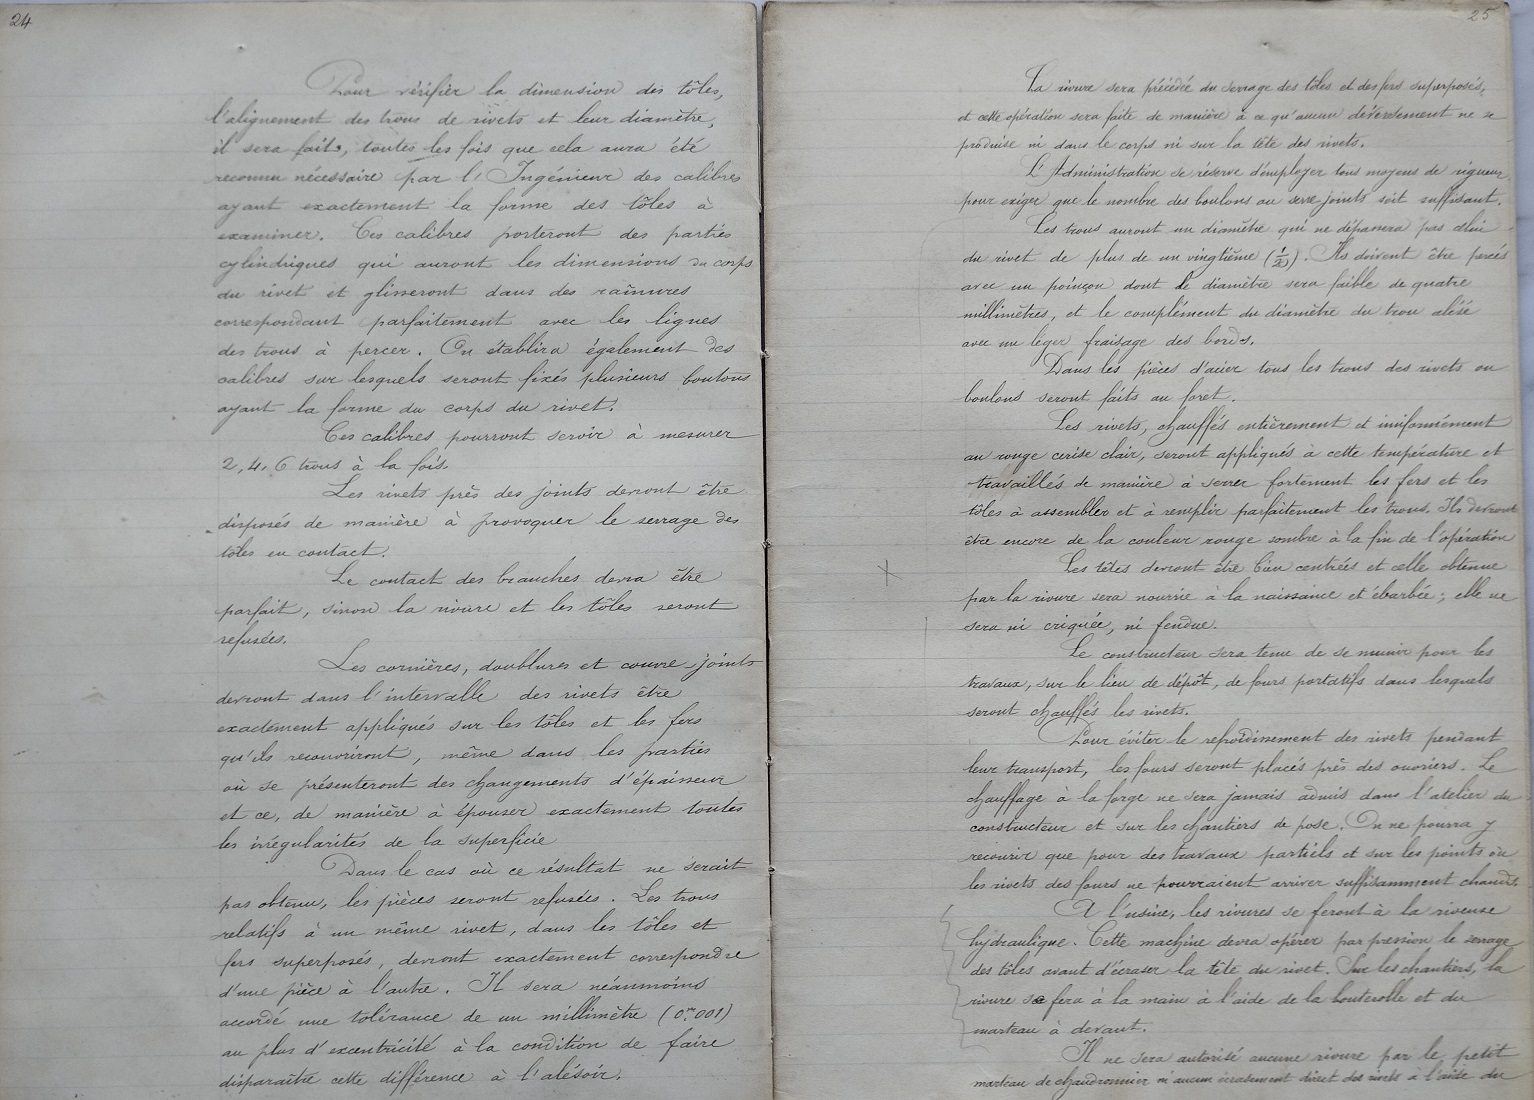 24
Pour vérifier la dimension des tôles,
l'alignement des trous de rivets et leur diamètre,
il sera fait, toutes les fois que cela aura été
reconnu nécessaire par l'Ingénieur des calibres
ayant exactement la forme des tôles à
examiner. Ces calibres porteront des parties
cylindriques qui auront les dimensions du corps
du rivet et glisseront dans des rainures
correspondant parfaitement avec les lignes
des trous à percer. On établira également des
calibres sur lesquels seront fixés plusieurs boutons
ayant la forme du corps du rivet.
Ces calibres pourront servir à mesurer
2, 4, 6 trous à la fois.
Les rivets près des joints devront être
disposés de manière à provoquer le serrage des
tôles en contact.
Le contact des branches devra être
parfait, sinon la rivure et les tôles seront
refusées.
Les cornières, doublures et couvre-joints
devront dans l'intervalle des rivets être
exactement appliqués sur les tôles et les fers
qu'ils recouvriront, même dans les parties
où se présenteront des changements d'épaisseur
et ce, de manière à épouser exactement toutes
les irrégularités de la superficie
Dans le cas où ce résultat ne serait
pas obtenu, les pièces seront refusées. Les trous
relatifs à un même rivet, dans les tôles et
fers superposés, devront exactement correspondre
d'une pièce à l'autre. Il sera néanmoins
accordé une tolérance de un millimètre (0,m001)
au plus d'excentricité à la condition de faire
disparaître cette différence à l'alésoir.
25
La rivure sera précédée du serrage des tôles et des fers superposés,
et cette opération sera faite de manière à ce qu'aucun déversement ne se
produise ni dans le corps ni sur la tête des rivets.
L'Administration se réserve d'employer tous moyens de rigueur
pour exiger que le nombre des boulons ou serre joints soit suffisant.
Les trous auront un diamètre qui ne dépassera pas celui
du rivet de plus de un vingtième (1/2). Ils doivent être percés
avec un poinçon dont le diamètre sera faible de quatre
millimètres, et le complément du diamètre du trou alésé
avec un léger fraisage des bords.
Dans les pièces d'acier tous les trous des rivets ou
boulons seront faits au foret.
Les rivets, chauffés entièrement et uniformément
au rouge cerise clair, seront appliqués à cette température et
travaillés de manière à serrer fortement les fers et les
tôles à assembler et à remplir parfaitement les trous. Ils devront
être encore de la couleur rouge sombre à la fin de l'opération
Les têtes devront être bien centrées et celle obtenue
par la rivure sera nourrie à la naissance et ébarbée; elle ne
sera ni criquée, ni fendue.
Le constructeur sera tenu de se munir pour les
travaux, sur le lieu de dépôt, de fours portatifs dans lesquels
seront chauffés les rivets.
Pour éviter le refroidissement des rivets pendant
leur transport, les fours seront placés près des ouvriers. Le
chauffage à la forge ne sera jamais admis dans l'atelier du
constructeur et sur les chantiers de pose. On ne pourra y
recourir que pour des travaux partiels et sur les points où
les rivets des fours ne pourraient arriver suffisamment chauds.
A l'usine, les rivures se feront à la riveuse
hydraulique. Cette machine devra opérer par pression le serrage
des tôles avant d'écraser la tête du rivet. Sur les chantiers, la
rivure se fera à la main à l'aide de la bouterolle et du
marteau à devant.
Il ne sera autorisé aucune rivure par le petit
marteau de chaudronnier ni aucun écrasement direct des rivets à l'aide du